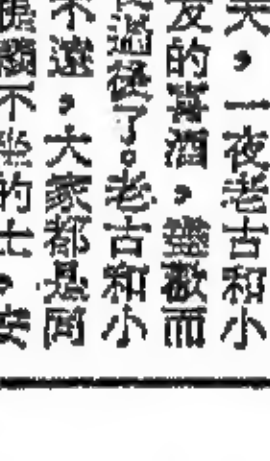 天，一夜老古和小
友的喜酒，盡歡而
過從了。老古和小
不遠，大家都是同
不幾的士